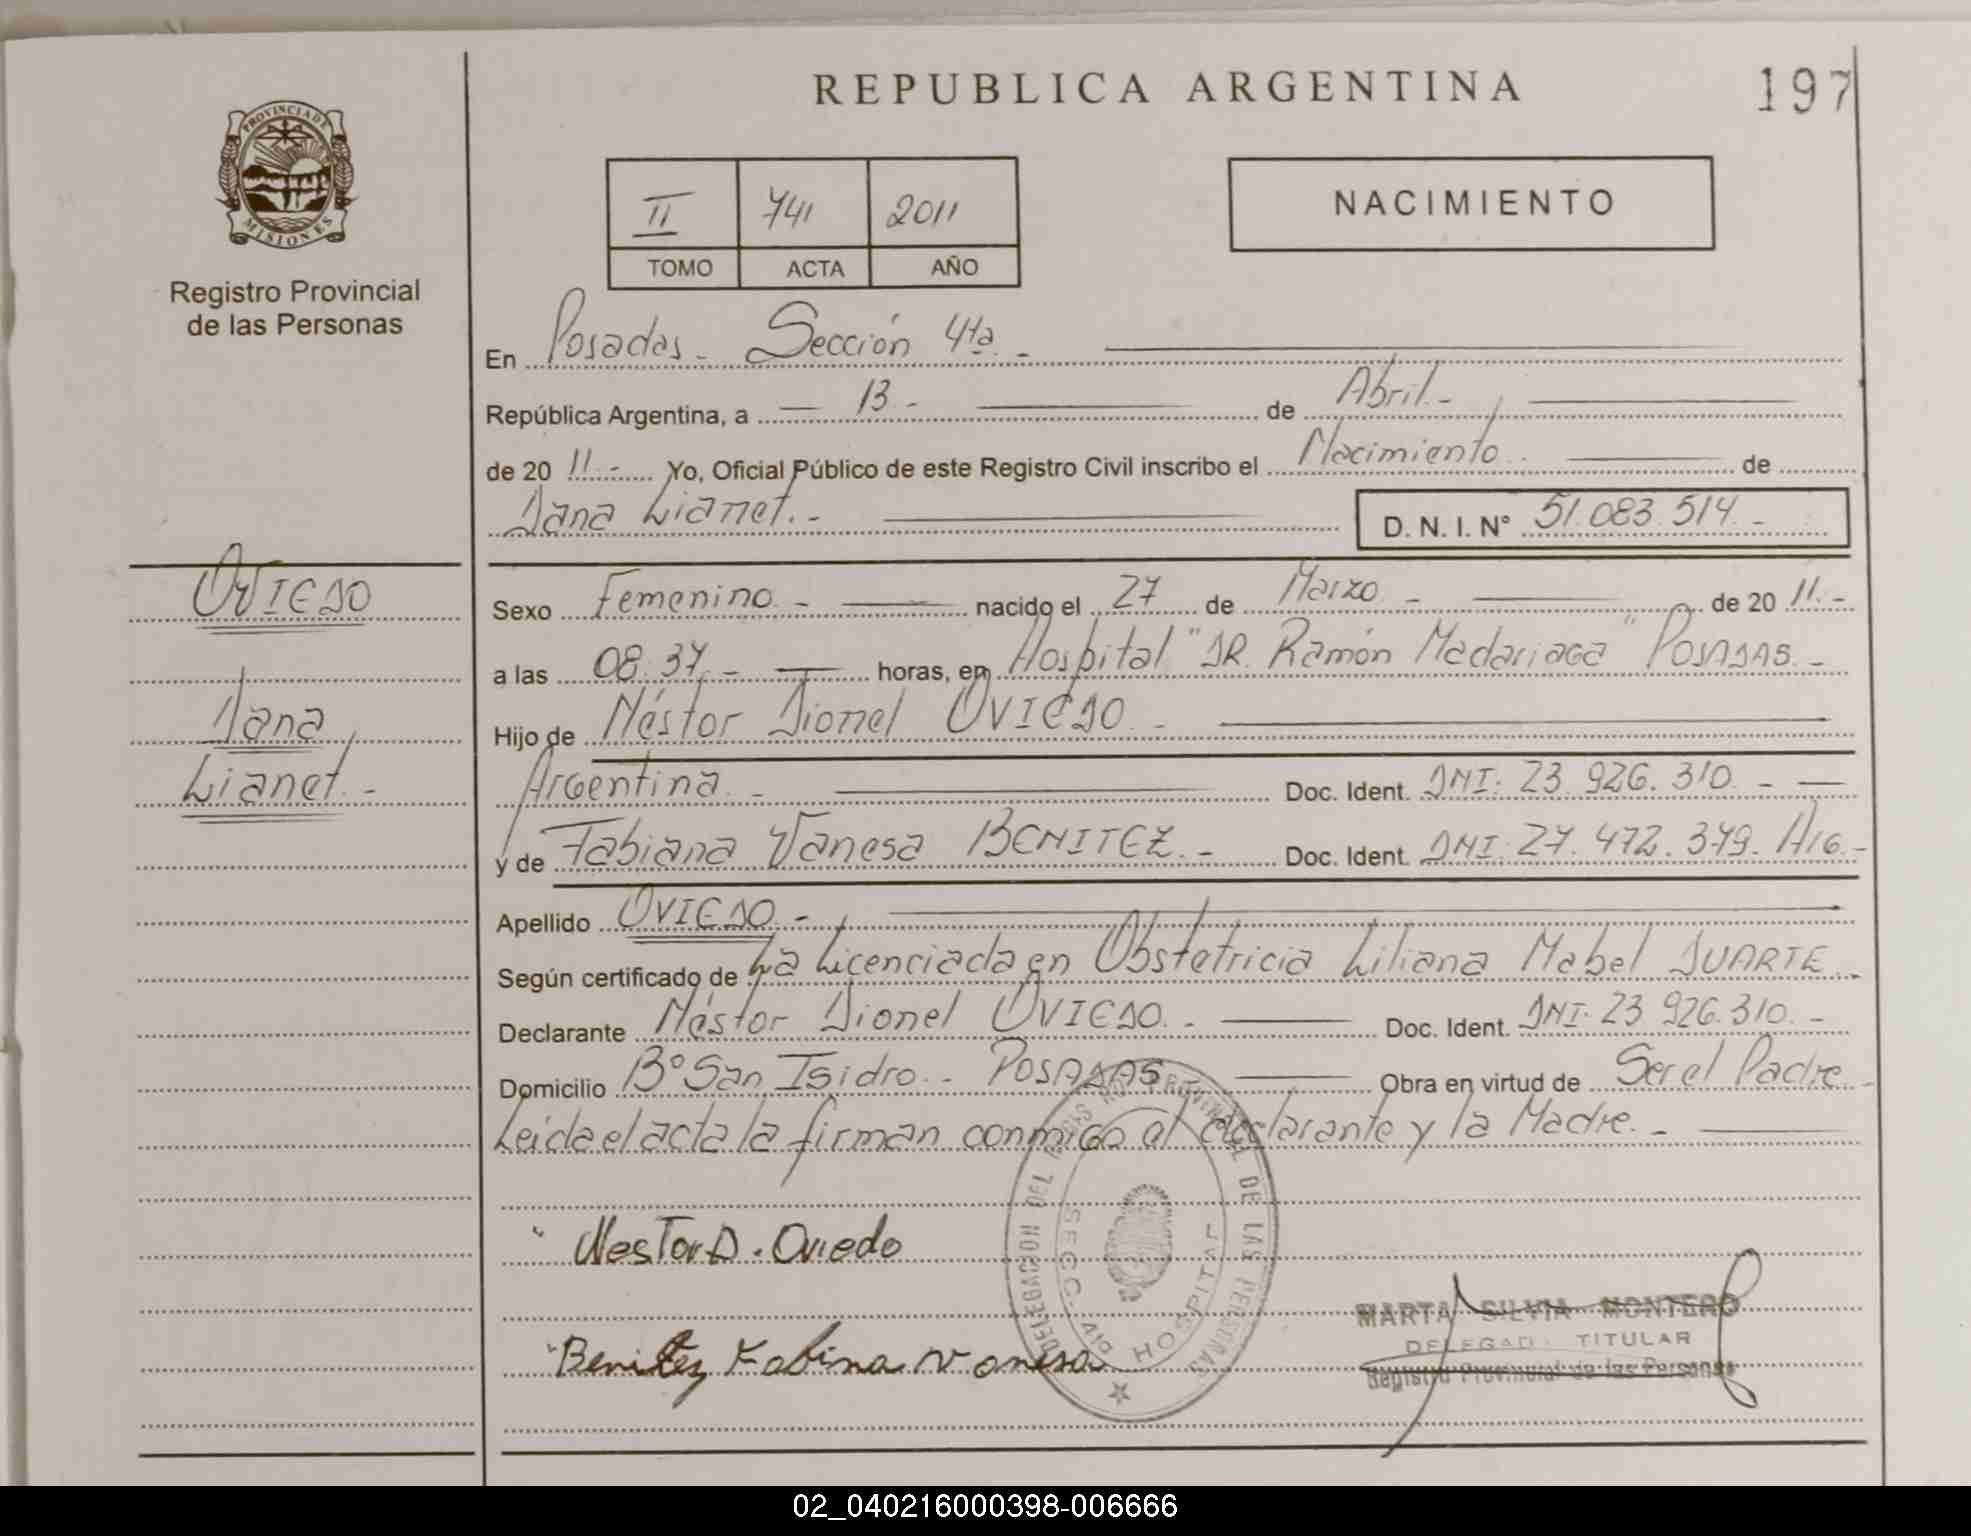 REPUBLICA ARGENTINA
197
PROVINCIA DE
MISIONES
Registro Provincial
de las Personas
II 741 2011
TOMO ACTA AÑO
NACIMIENTO
En Posadas - Sección 4ta. -
República Argentina, a 13 - de Abril. -
de 20 11. - Yo, Oficial Público de este Registro Civil inscribo el Nacimiento. de
Dana Lianet. - D. N. I. N° 51.083.514. -
OVIEDO
Dana
Lianet. -
Sexo Femenino. - nacido el 27 de Marzo. - de 20 11. -
a las 08:37. - horas, en Hospital "DR. Ramón Madariaga" POSADAS. -
Hijo de Néstor Dionel OVIEDO. -
Argentina. - Doc. Ident. DNI: 23.926.310. -
y de Fabiana Vanesa BENITEZ. - Doc. Ident. DNI: 27.472.379. Arg. -
Apellido OVIEDO. -
Según certificado de La Licenciada en Obstetricia Liliana Mabel DUARTE
Declarante Néstor Dionel OVIEDO. - Doc. Ident. DNI: 23.926.310. -
Domicilio B° San Isidro. - POSADAS Obra en virtud de Ser el Padre
Leida el acta la firman conmigo el declarante y la Madre. -
DELEGACION DEL REGISTRO PROVINCIAL DE LAS PERSONAS
SECC. 4ta HOSPITAL
Nestor D. Oviedo
Benitez Fabiana Vanesa
MARTA SILVIA MONTERO
DELEGADA TITULAR
Registro Provincial de las Personas
02_040216000398-006666